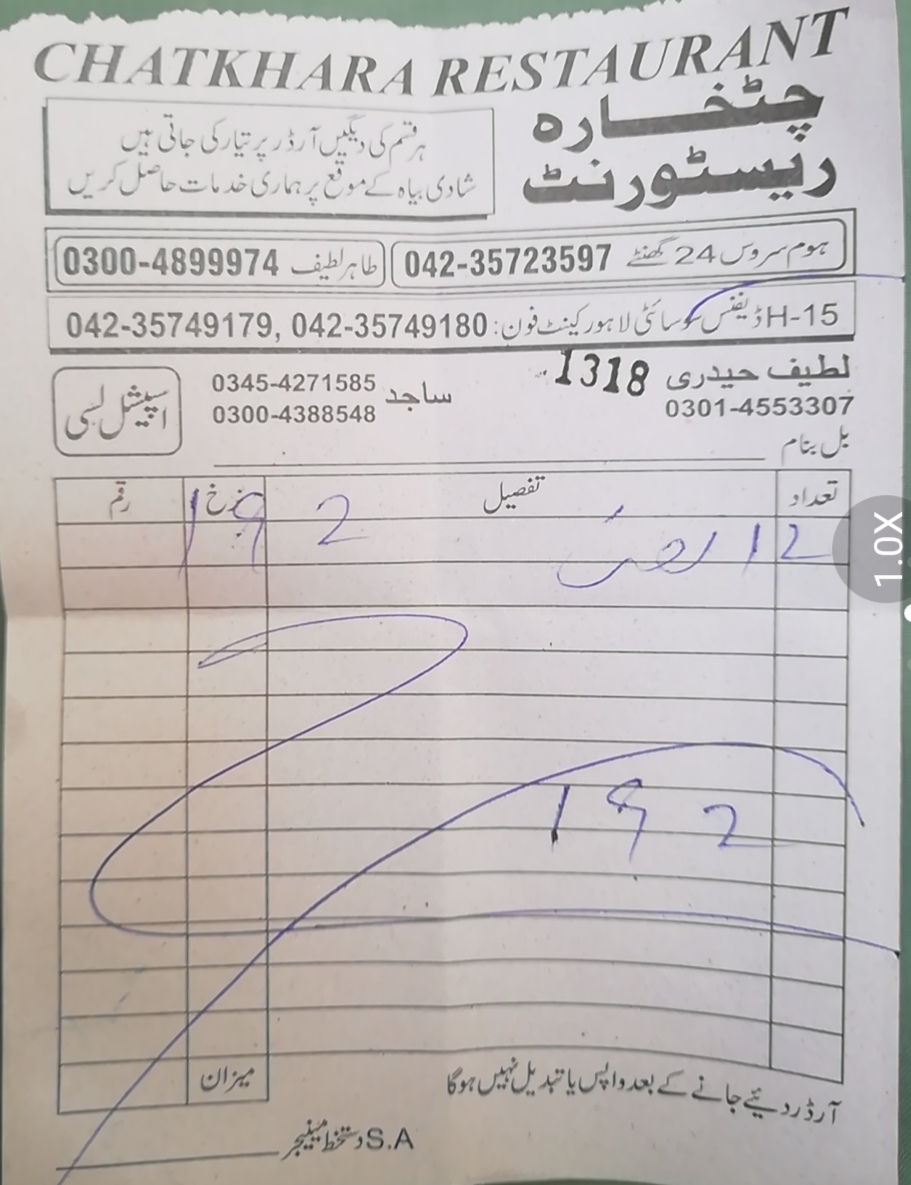 CHATKHARA RESTAURANT
چٹخارہ
ریسٹورنٹ
ہر قسم کی دیگیں آرڈر پر تیار کی جاتی ہیں
شادی بیاہ کے موقع پر ہماری خدمات حاصل کریں
ہوم سروس 24 گھنٹے 042-35723597
طاہر لطیف 0300-4899974
H-15 ڈیفنس سوسائٹی لاہور کینٹ فون: 042-35749179, 042-35749180
لطیف حیدری 1318
0301-4553307
ساجد 0345-4271585
0300-4388548
اسپیشل لسی
بل بنام
تعداد تفصیل نرخ رقم
12 192
192
میزان
آرڈر دیئے جانے کے بعد واپس یا تبدیل نہیں ہوگا
S.A دستخط مینیجر
1.0X